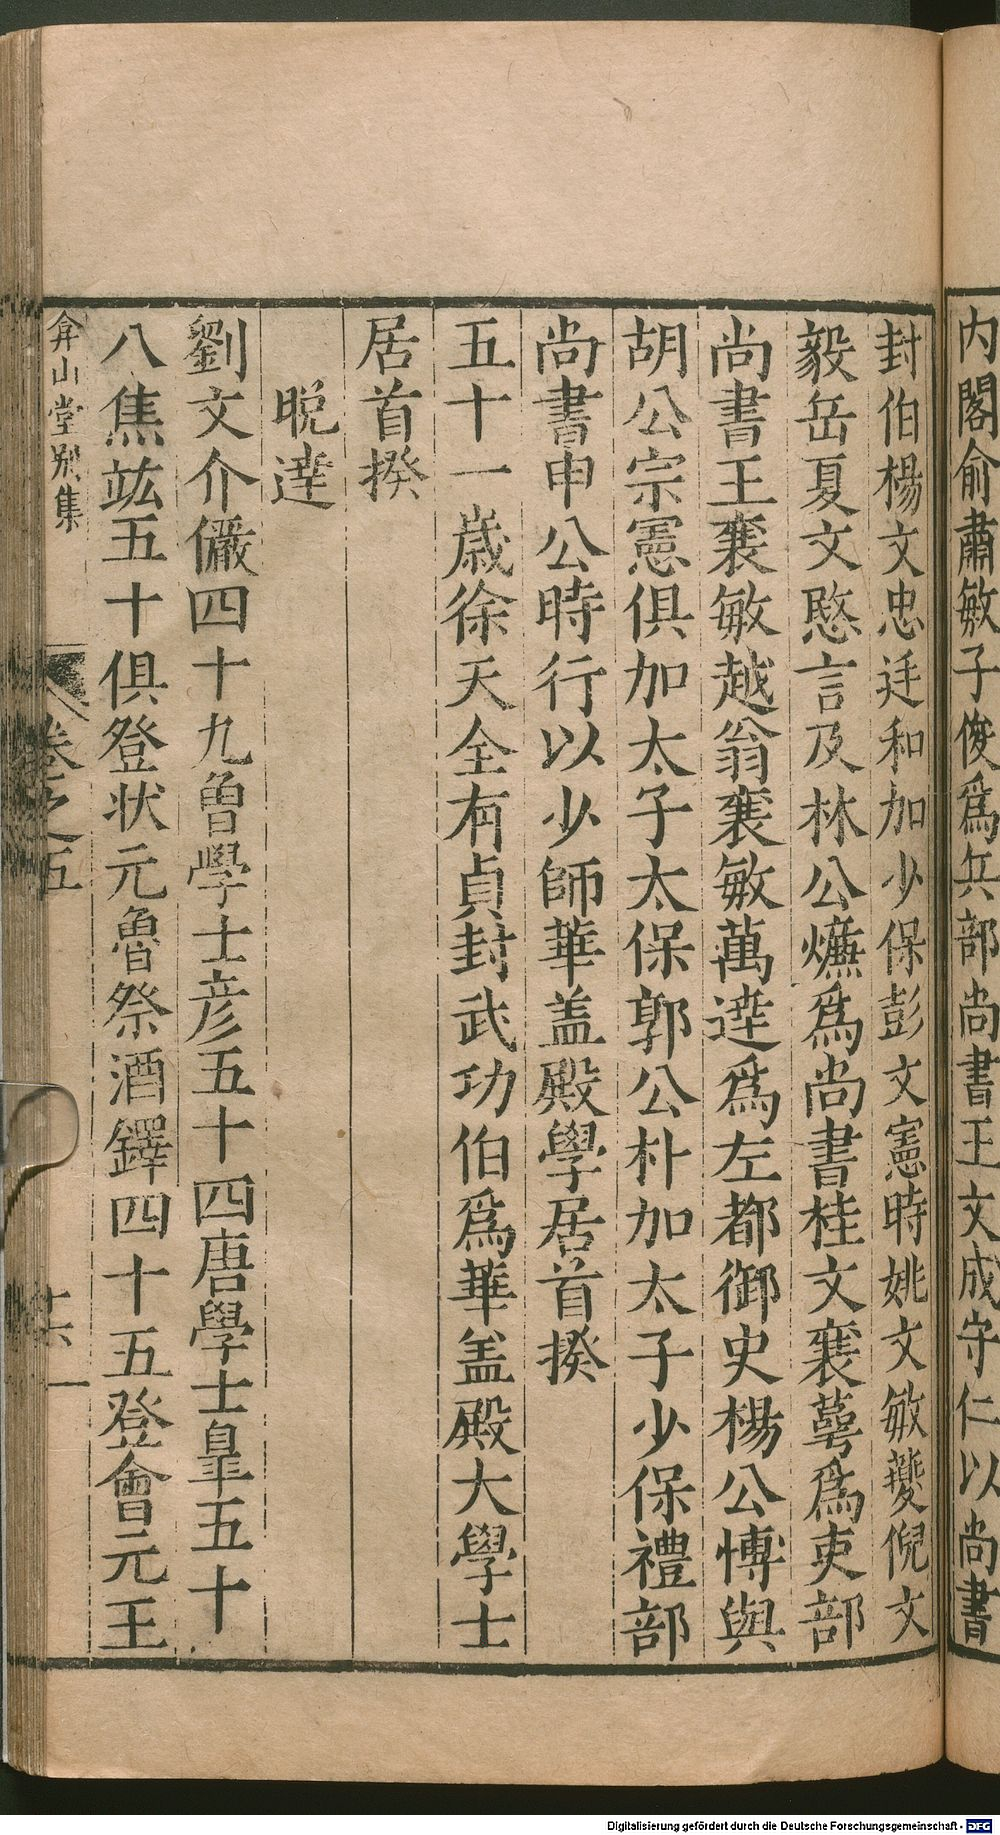 內閣俞肅敏子俊爲兵部尚書王文成守仁以尚書
封伯楊文忠廷和加少保彭文憲時姚文敏夔倪文
毅岳夏文愍言及林公㷆爲尚書桂文襄萼爲吏部
尚書王襄敏越翁襄敏萬達爲左都御史楊公博與
胡公宗憲俱加太子太保郭公朴加太子少保禮部
尚書申公時行以少師華盖殿學居首揆
五十一歲徐天全有貞封武功伯爲華盖殿大學士
居首揆
晚達
劉文介儼四十九魯學士彥五十四唐學士皐五十
八焦竑五十俱登状元魯祭酒鐸四十五登會元王
弇山堂别集 卷之五 十六
Digitalisierung gefördert durch die Deutsche Forschungsgemeinschaft - DFG